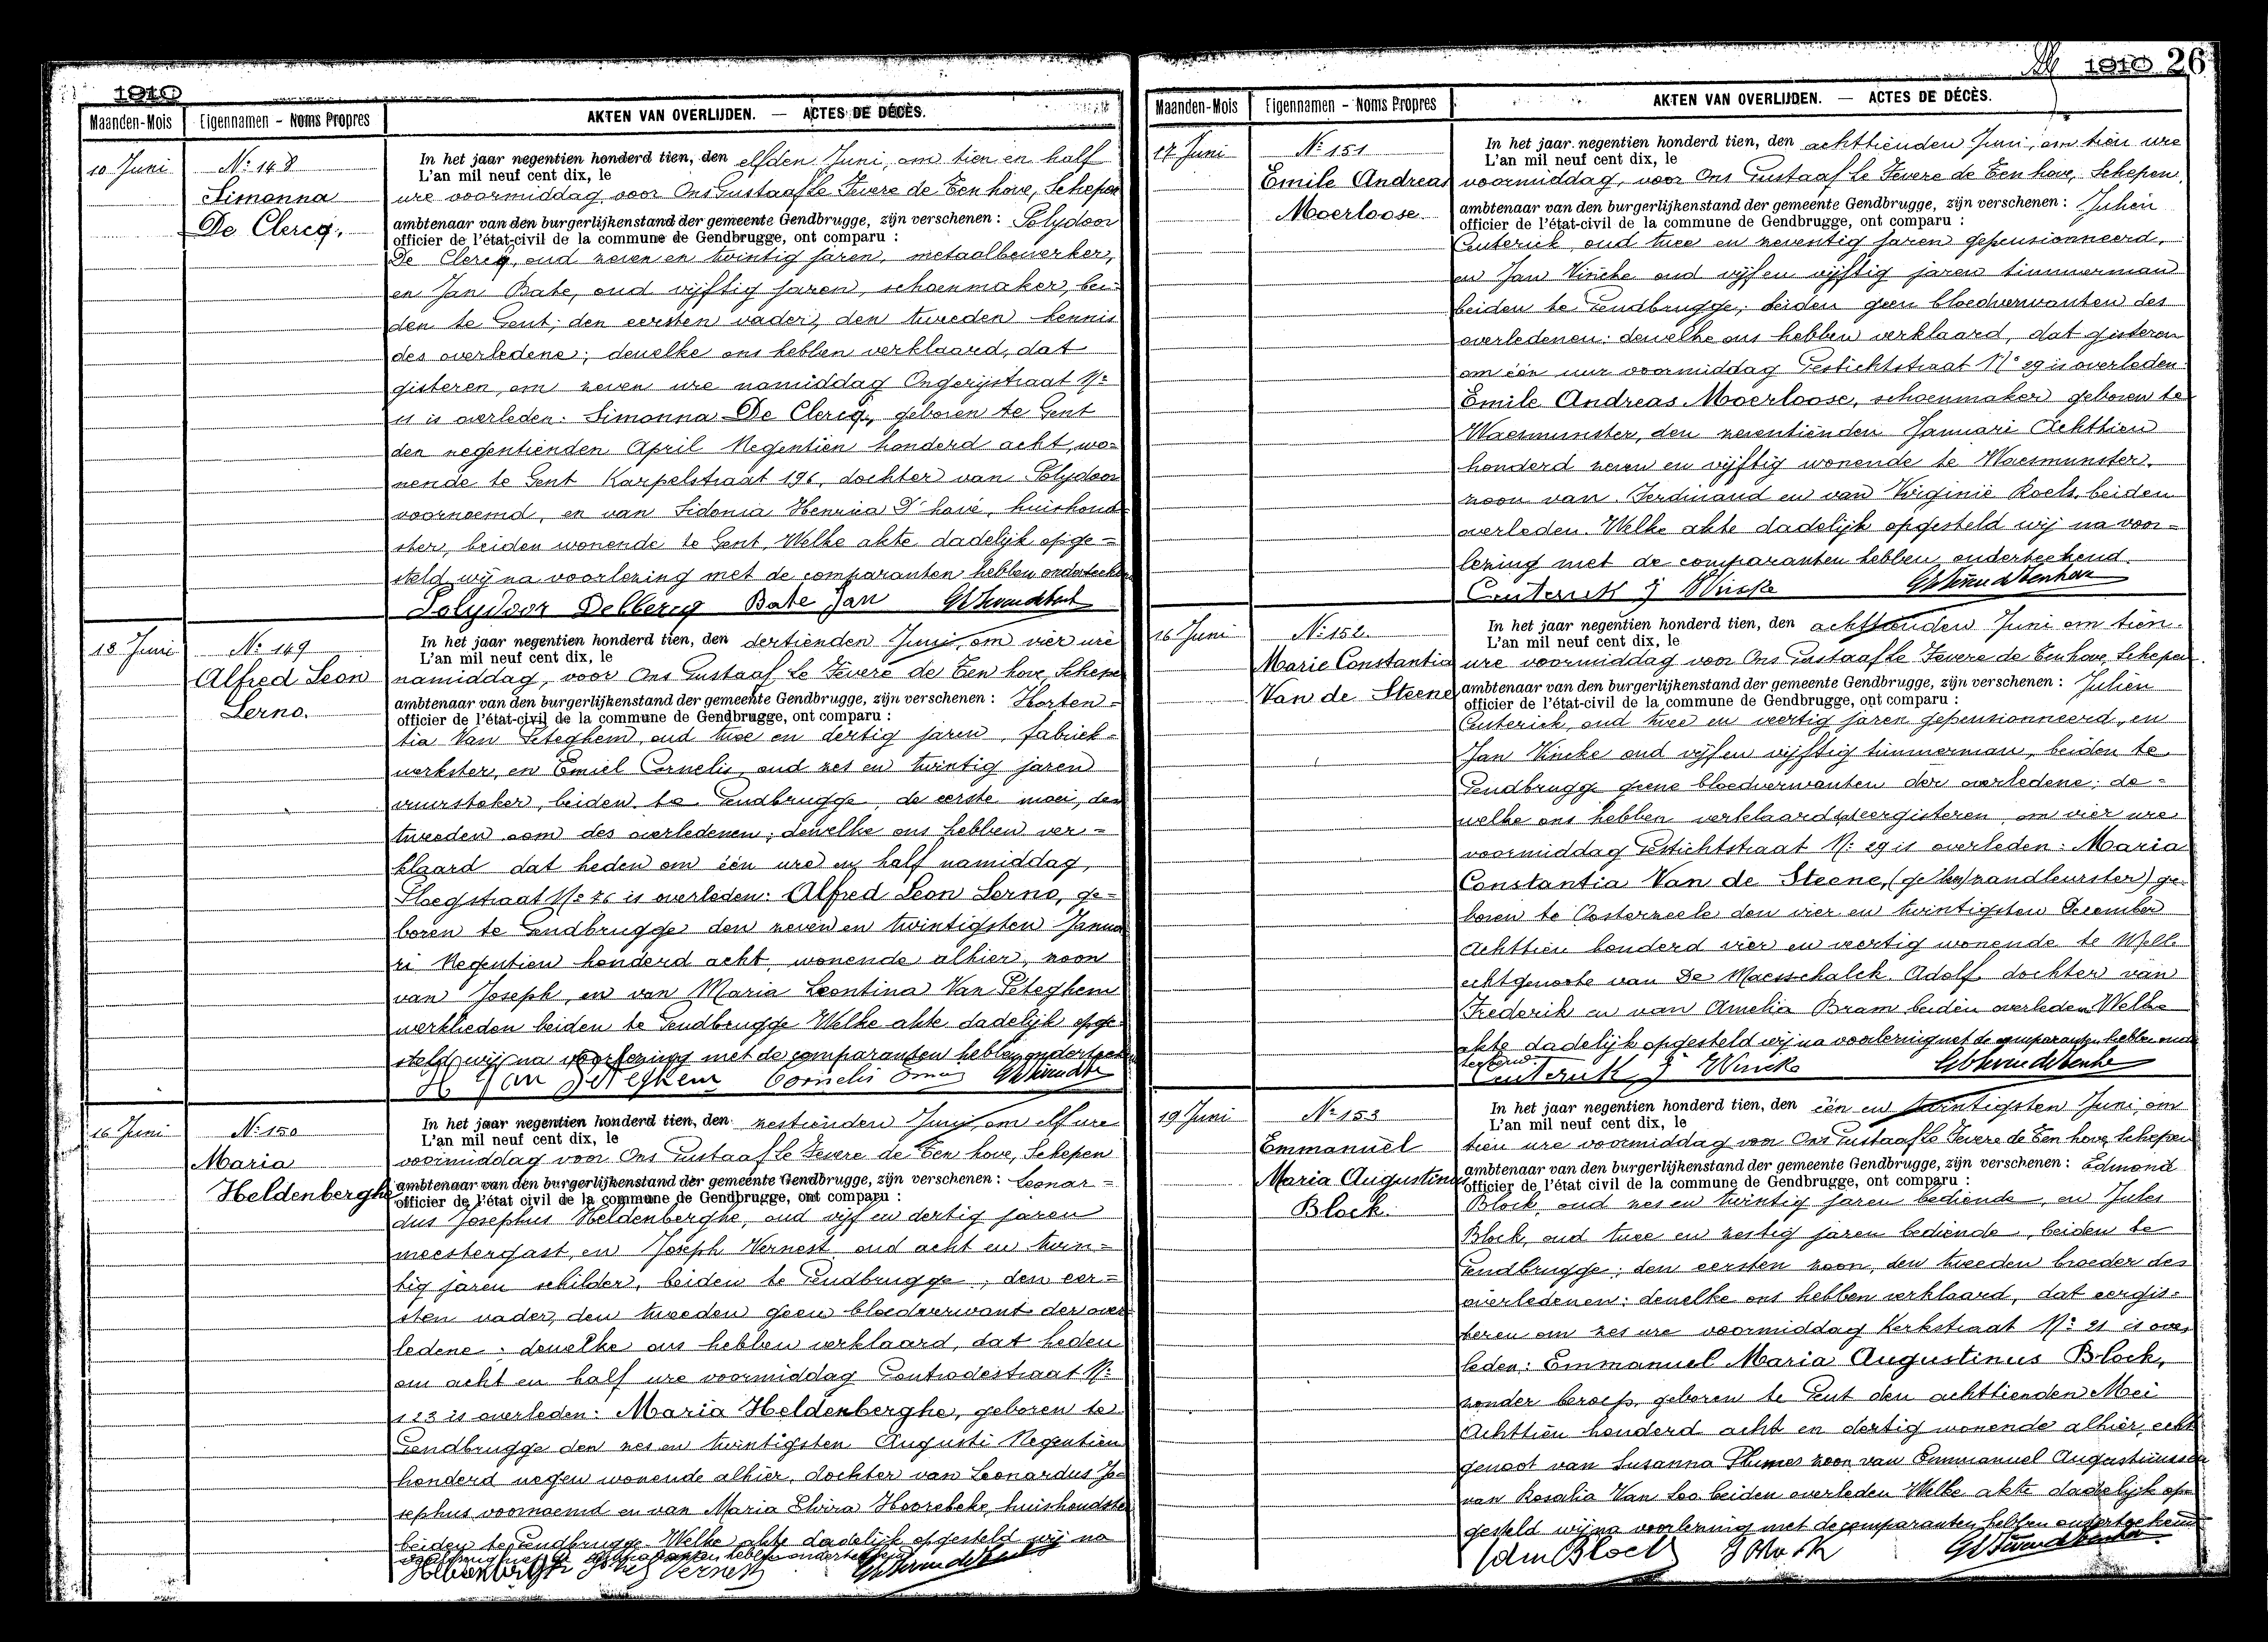 1910
Maanden-Mois Eigennamen - Noms Propres AKTEN VAN OVERLIJDEN. — ACTES DE DÉCÈS.
10 Juni
No: 148
Simonna
De Clercq.
In het jaar negentien honderd tien, den elfden Juni, om tien en half
L'an mil neuf cent dix, le
ure voormiddag voor Ons Gustaaf le Fevere de Ten hove, Schepen
ambtenaar van den burgerlijkenstand der gemeente Gendbrugge, zijn verschenen : Polydoor
officier de l'état-civil de la commune de Gendbrugge, ont comparu :
De Clercq, oud zeven en twintig jaren, metaalbewerker,
en Jan Bate, oud vijftig jaren, schoenmaker, bei-
den te Gent; den eersten vader, den tweeden kennis
des overledene; dewelke ons hebben verklaard, dat
gisteren, om zeven ure namiddag Ongerijstraat No:
11 is overleden: Simonna De Clercq, geboren te Gent
den negentienden April Negentien honderd acht, wo-
nende te Gent Karpelstraat 196, dochter van Polydoor
voornoemd, en van Sidonia Henrica D'hoie, huishoud-
ster, beiden wonende te Gent. Welke akte dadelijk opge-
steld wij na voorlezing met de comparanten hebben onderteeken
Polydoor DeClercq Bate Jan
13 Juni
No: 149
Alfred Leon
Lerno.
In het jaar negentien honderd tien, den dertienden Juni, om vier ure
L'an mil neuf cent dix, le
namiddag, voor Ons Gustaaf le Fevere de Ten hove, Schepe
ambtenaar van den burgerlijkenstand der gemeente Gendbrugge, zijn verschenen : Horten-
officier de l'état-civil de la commune de Gendbrugge, ont comparu :
tia Van Peteghem, oud twee en dertig jaren, fabriek-
werkster, en Emiel Cornelis, oud zes en twintig jaren
vuurstoker, beiden te Gendbrugge, de eerste moei, den
tweeden oom des overledenen; dewelke ons hebben ver-
klaard dat heden om één ure en half namiddag,
Ploegstraat No: 26 is overleden: Alfred Leon Lerno, ge-
boren te Gendbrugge den zeven en twintigsten Janua
ri Negentien honderd acht, wonende alhier, zoon
van Joseph, en van Maria Leontina Van Peteghem
werklieden beiden te Gendbrugge Welke akte dadelijk opge-
steld wij na voorlezing met de comparanten hebben onderteeken
H Van Peteghem Cornelis Emiel
16 Juni
No: 150
Maria
Heldenberghe
In het jaar negentien honderd tien, den zestienden Juni, om elf ure
L'an mil neuf cent dix, le
voormiddag voor Ons Gustaaf le Fevere de Ten hove, Schepen
ambtenaar van den burgerlijkenstand der gemeente Gendbrugge, zijn verschenen : Leonar-
officier de l'état civil de la commune de Gendbrugge, ont comparu :
dus Josephus Heldenberghe, oud vijf en dertig jaren
meestergast, en Joseph Vernest, oud acht en twin-
tig jaren schilder, beiden te Gendbrugge, den eer-
sten vader, den tweeden geen bloedverwant der over
ledene; dewelke ons hebben verklaard, dat heden
om acht en half ure voormiddag Controdestraat No:
123 is overleden: Maria Heldenberghe, geboren te
Gendbrugge den zes en twintigsten Augusti Negentien
honderd negen wonende alhier, dochter van Leonardus Jo-
sephus voornoemd en van Maria Elvira Hoorebeke, huishoudster
beiden te Gendbrugge. Welke akte dadelijk opgesteld wij na
voorlezing met de comparanten hebben onderteekend
Heldenberghe Vernest
1910 26
Maanden-Mois Eigennamen - Noms Propres AKTEN VAN OVERLIJDEN. — ACTES DE DÉCÈS.
17 Juni
No: 151
Emile Andreas
Moerloose.
In het jaar negentien honderd tien, den achttienden Juni, om tien ure
L'an mil neuf cent dix, le
voormiddag, voor Ons Gustaaf le Fevere de Ten hove, Schepen,
ambtenaar van den burgerlijkenstand der gemeente Gendbrugge, zijn verschenen : Julien
officier de l'état-civil de la commune de Gendbrugge, ont comparu :
Centerick, oud twee en zeventig jaren gepensionneerd,
en Jan Vincke oud vijf en vijftig jaren timmerman
beiden te Gendbrugge; beiden geen bloedverwanten des
overledenen: dewelke ons hebben verklaard, dat gisteren
om één uur voormiddag Gestichtstraat No 29 is overleden:
Emile Andreas Moerloose, schoenmaker geboren te
Waesmunster, den zeventienden Januari Achttien
honderd zeven en vijftig wonende te Waesmunster.
zoon van Ferdinand en van Virginie Roels, beiden
overleden. Welke akte dadelijk opgesteld wij na voor-
lezing met de comparanten hebben onderteekend.
Centerick J Vincke
16 Juni
No: 152.
Marie Constantia
Van de Steene
In het jaar negentien honderd tien, den achttienden Juni om tien
L'an mil neuf cent dix, le
ure voormiddag voor Ons Gustaaf le Fevere de Ten hove, Schepen.
ambtenaar van den burgerlijkenstand der gemeente Gendbrugge, zijn verschenen : Julien
officier de l'état-civil de la commune de Gendbrugge, ont comparu :
Centerick, oud twee en veertig jaren gepensionneerd, en
Jan Vincke oud vijf en vijftig timmerman, beiden te
Gendbrugg geene bloedverwanten der overledene; de-
welke ons hebben verklaard dat eergisteren, om vier ure
voormiddag Gestichtstraat No: 29 is overleden: Maria
Constantia Van de Steene, zandleurster) ge-
boren te Oosterzeele den vier en twintigsten December
Achttien honderd vier en veertig wonende te Melle
echtgenoote van De Maesschalck Adolf, dochter van
Frederik en van Amelia Bram beiden overleden. Welke
akte dadelijk opgesteld wij na voorlezing met de comparanten hebben onder
teekend.
Centerick J Vincke
19 Juni
No 153
Emmanuel
Maria Augustinus
Block.
In het jaar negentien honderd tien, den één en twintigsten Juni, om
L'an mil neuf cent dix, le
tien ure voormiddag voor Ons Gustaaf le Fevere de Ten hove, Schepen
ambtenaar van den burgerlijkenstand der gemeente Gendbrugge, zijn verschenen : Edmond
officier de l'état civil de la commune de Gendbrugge, ont comparu :
Block, oud zes en twintig jaren bediende, en Jules
Block, oud twee en zestig jaren bediende, beiden te
Gendbrugge; den eersten zoon, den tweeden broeder des
overledenen: dewelke ons hebben verklaard, dat eergis-
teren om zes ure voormiddag Kerkstraat No: 21 is over
leden: Emmanuel Maria Augustinus Block,
zonder beroep, geboren te Gent den achttienden Mei
Achttien honderd acht en dertig wonende alhier, echt
genoot van Susanna Plumes zoon van Emmanuel Augustinus en
van Rosalia Van Loo beiden overleden Welke akte dadelijk op
gesteld wij na voorlezing met de comparanten hebben onderteekend
Edm Block J Block